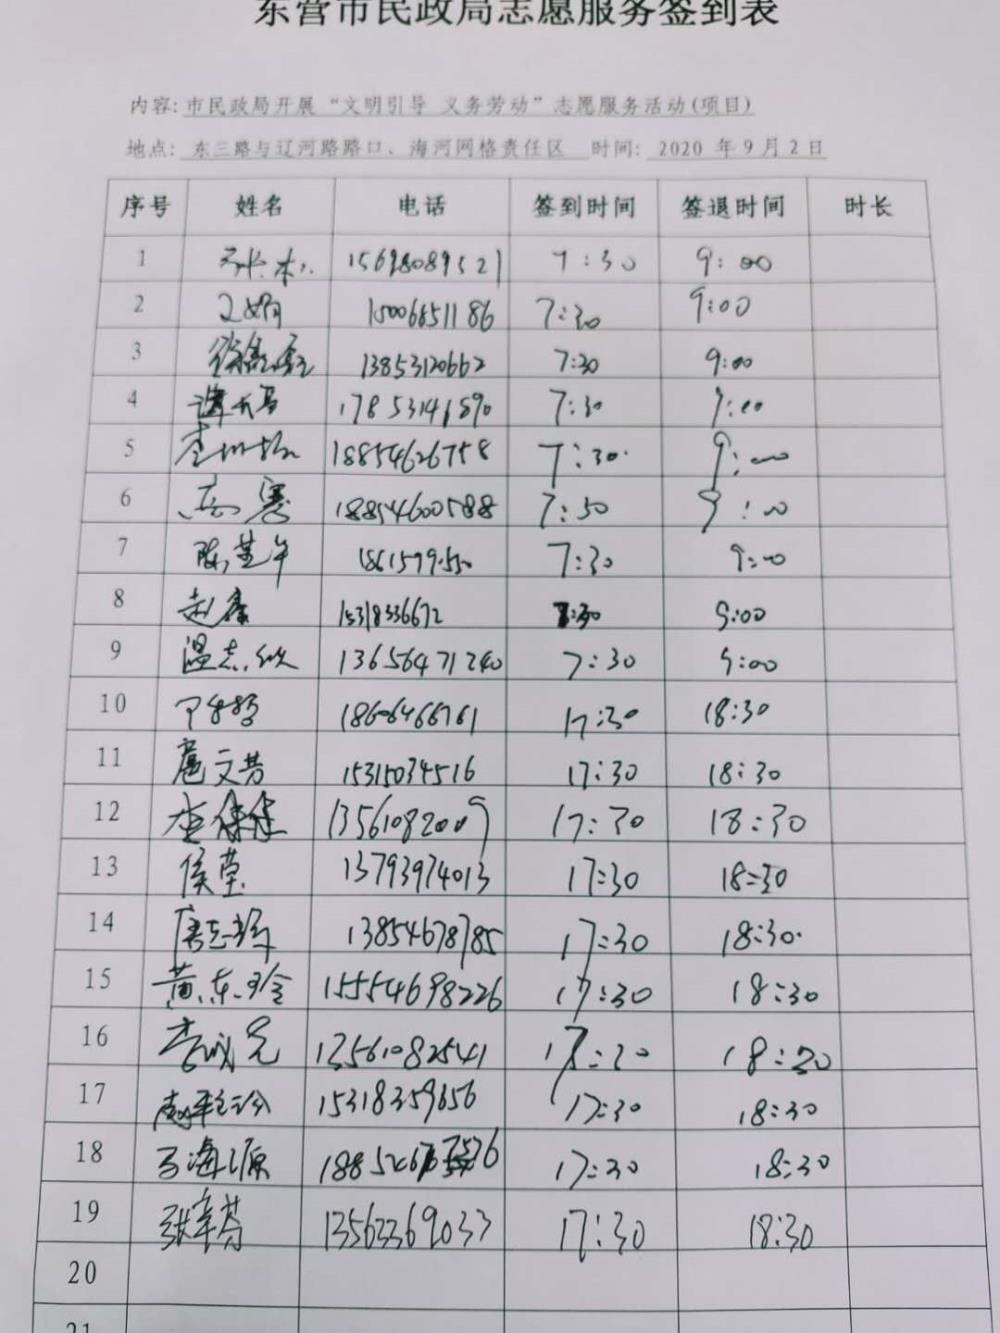 东营市民政局志愿服务签到表
内容: 市民政局开展 “文明引导 义务劳动” 志愿服务活动(项目)
地点: 东三路与辽河路路口、海河网格责任区 时间: 2020 年 9 月 2 日
序号 姓名 电话 签到时间 签退时间 时长
1 7:30 9:00
2 15006851186 7:30 9:00
3 13853120662 7:30 9:00
4 7:30 9:00
5 18854626758 7:30 9:00
6 高赛 18854600588 7:30 9:00
7 7:30 9:00
8 赵康 15318336672 7:30 9:00
9 13656471240 7:30 9:00
10 18606466761 17:30 18:30
11 扈文芳 15315034516 17:30 18:30
12 13561082009 17:30 18:30
13 侯莹 13793974013 17:30 18:30
14 13854678785 17:30 18:30
15 黄东玲 15554698226 17:30 18:30
16 13561082541 17:30 18:30
17 15318359656 17:30 18:30
18 马海源 17:30 18:30
19 13563369033 17:30 18:30
20
21